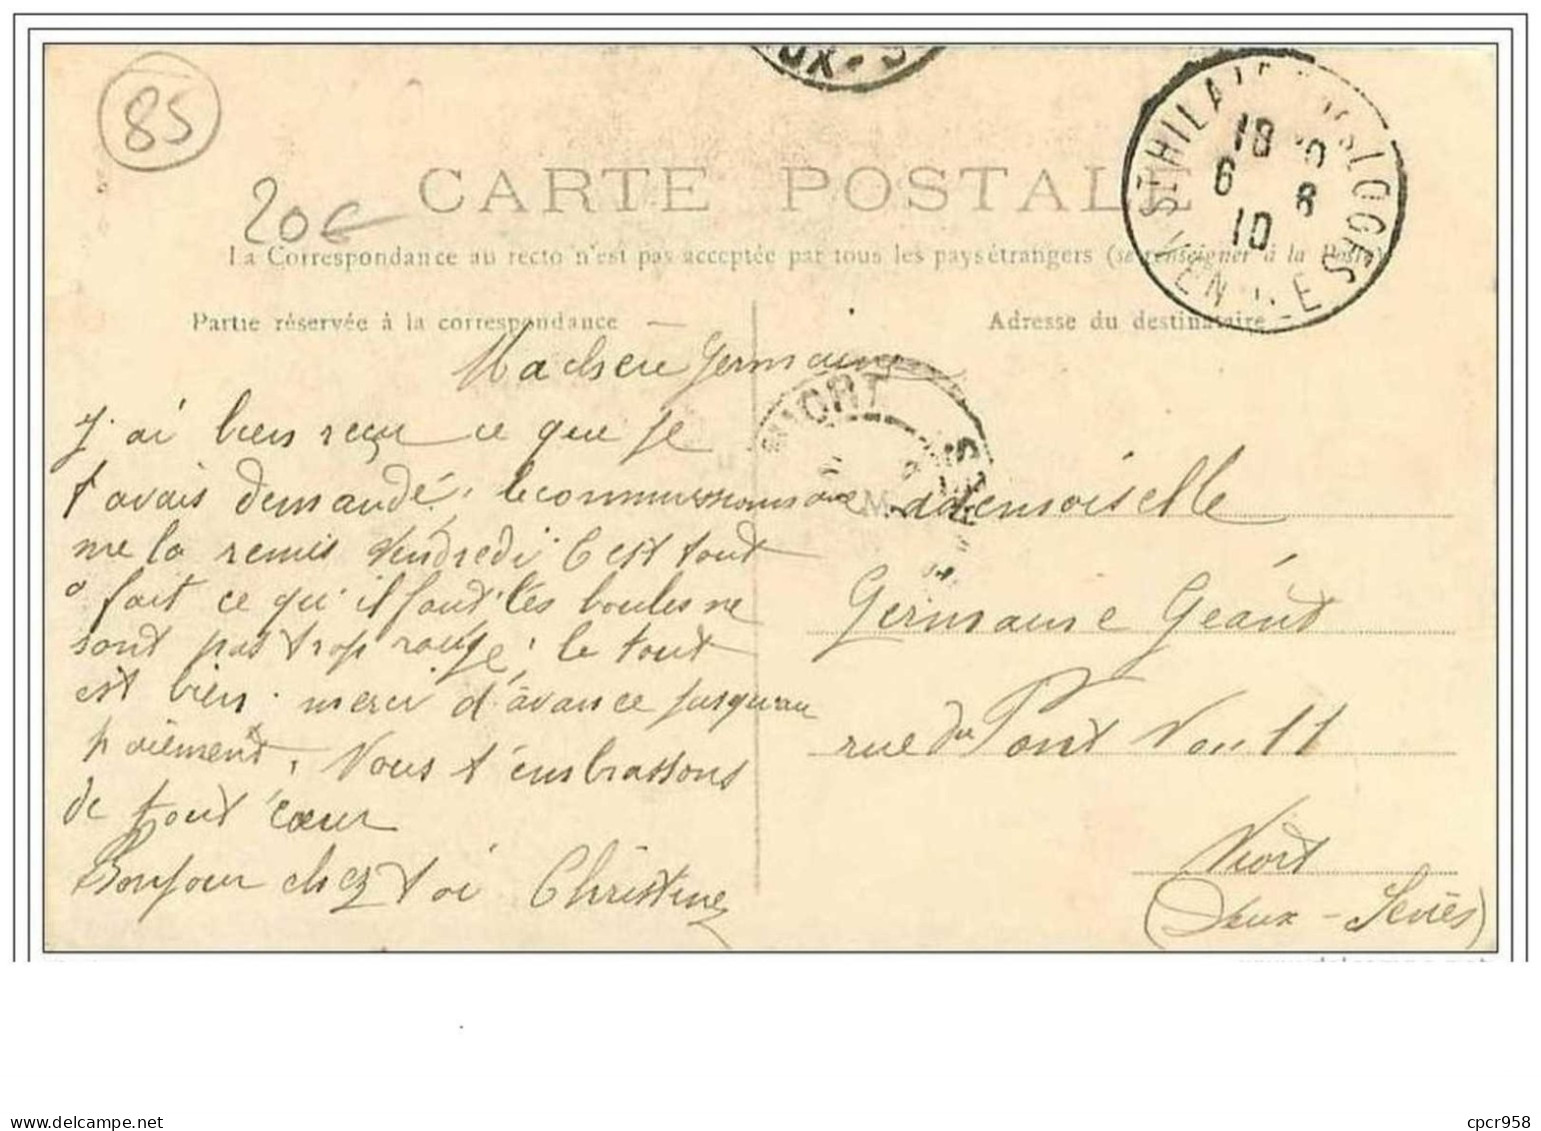 85
20€
UX - S
ST HILAIRE DES LOGES
VENDEE
18
6 8
10
CARTE POSTALE
La Correspondance au recto n'est pas acceptée par tous les pays étrangers (se renseigner à la Poste)
Partie réservée à la correspondance
Adresse du destinataire
Ma chere Germaine
J'ai bien reçu ce que je
t'avais demandé, le commissionnaire
me la remis Vendredi C'est tout
a fait ce qu'il faut les boules ne
sont pas trop rouge, le tout
est bien. merci d'avance jusqu'au
paiement, Nous t'embrassons
de tout cœur
Bonjour chez toi Christine
NIORT
Mademoiselle
Germaine Géant
rue du Pont
Niort
(Deux-Sèvres)
cartes-postales-delcampe.net
cpcr958